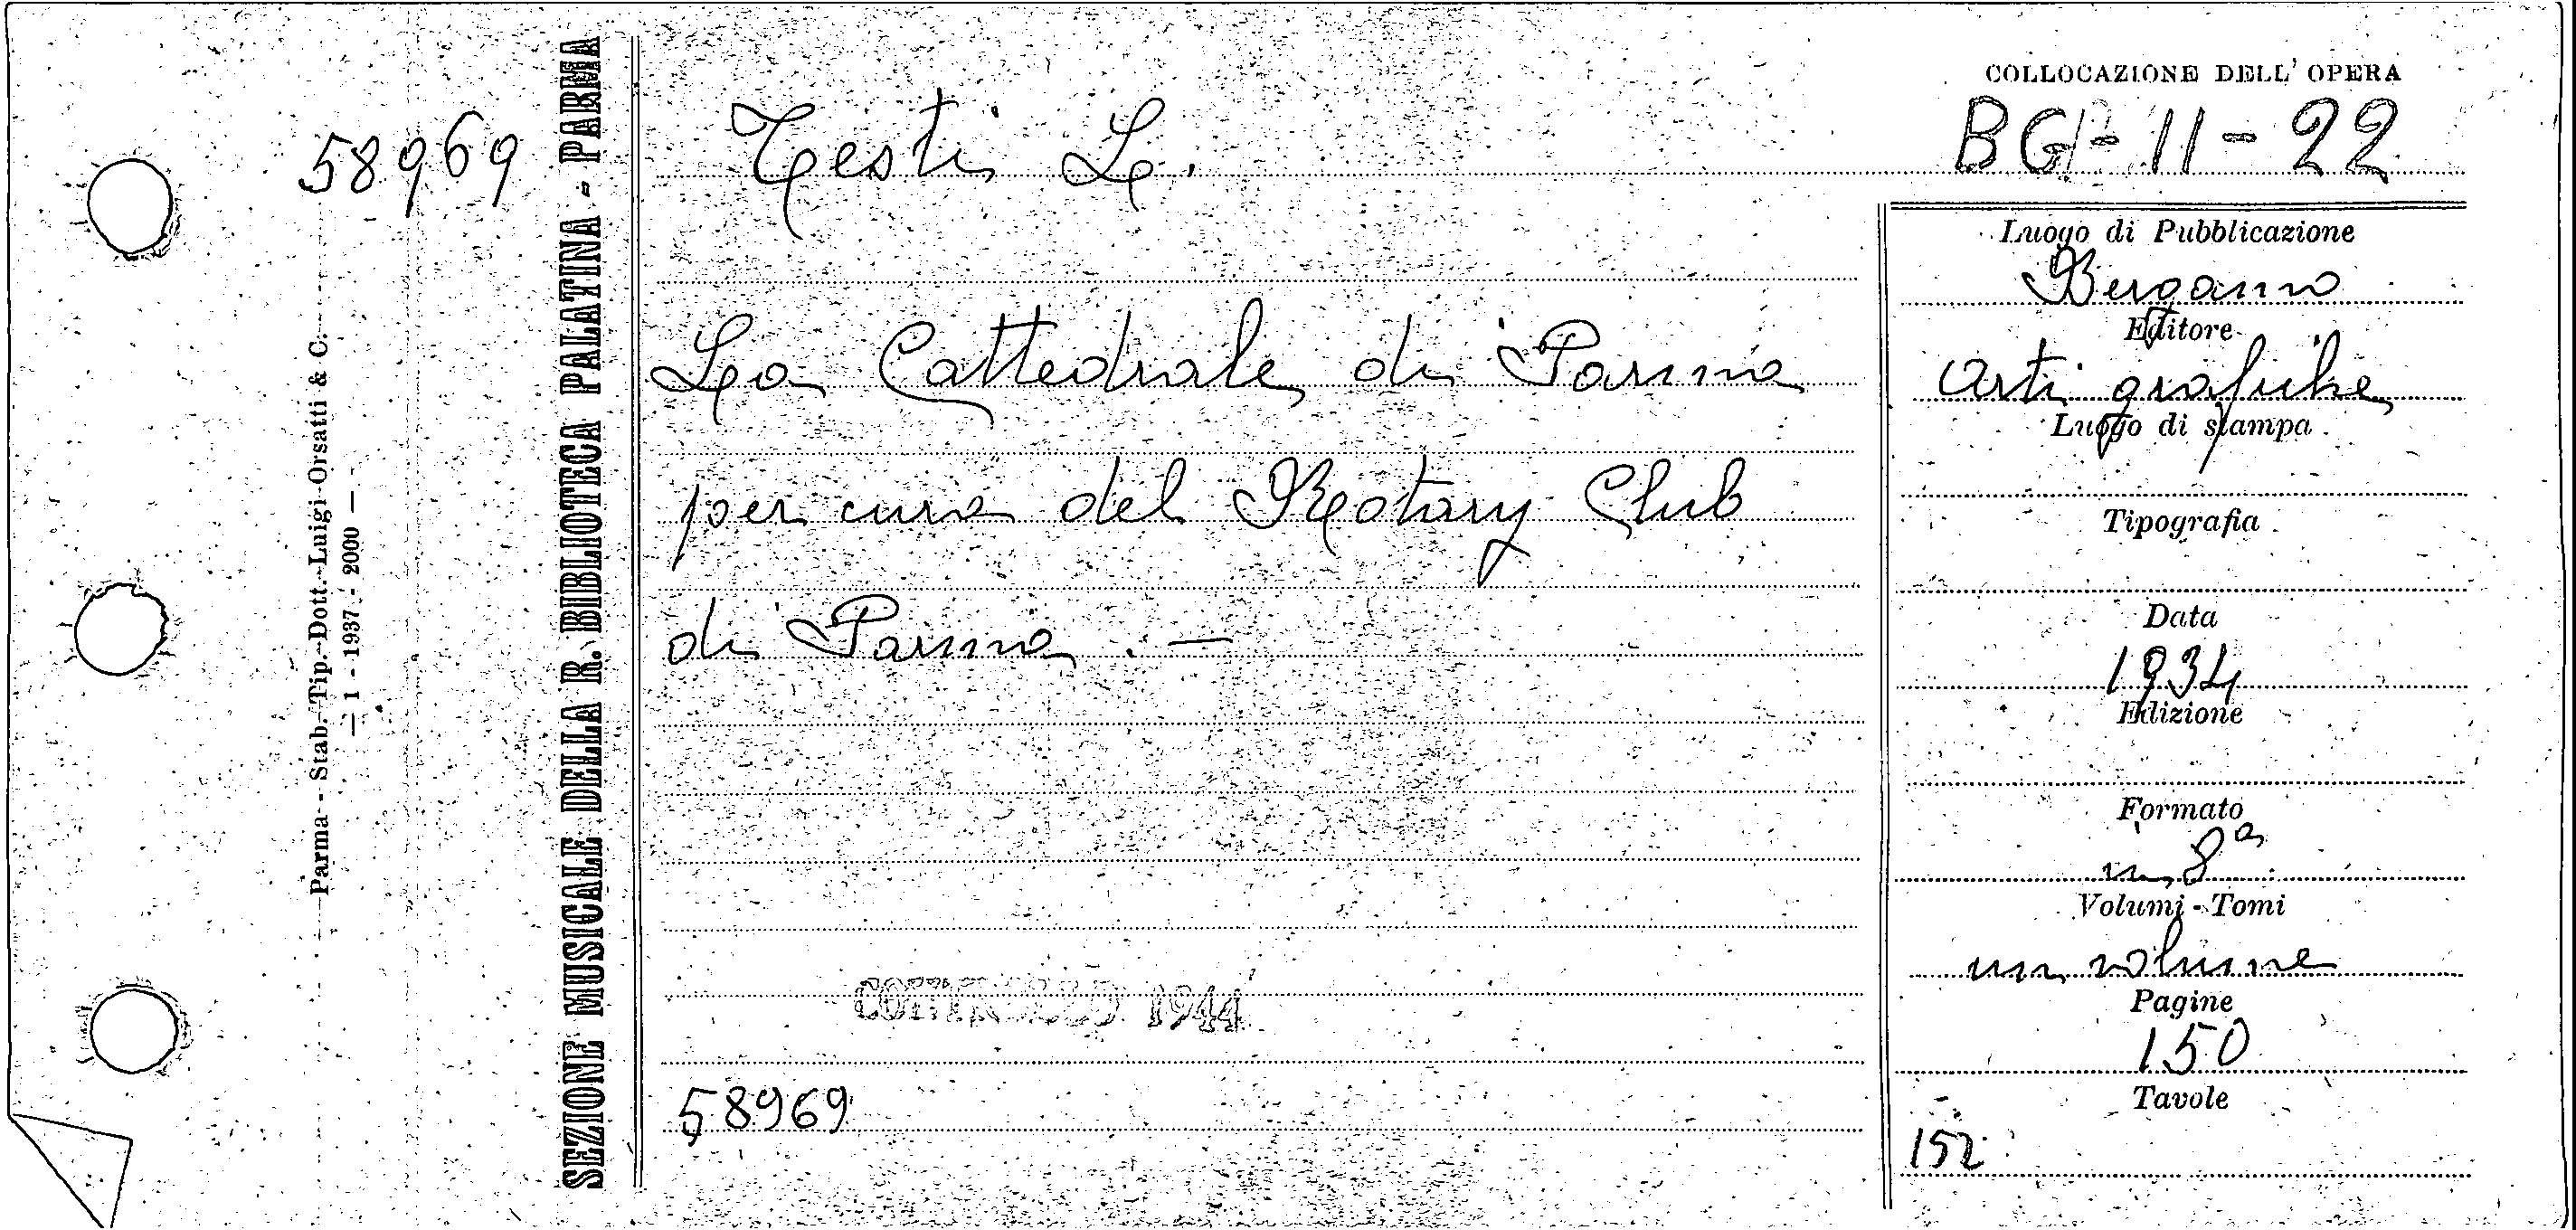 58969
Parma - Stab. Tip. Dott. Luigi Orsatti & C.
— 1 - 1937 - 2000 —
SEZIONE MUSICALE DELLA R. BIBLIOTECA PALATINA - PARMA
Testi L.
La Cattedrale di Parma
per cura del Rotary Club
di Parma . —
CONTROLLO 1944
58969
COLLOCAZIONE DELL' OPERA
BG-11-22
Luogo di Pubblicazione
Bergamo
Editore
Arti grafiche
Luogo di stampa
Tipografia
Data
1934
Edizione
Formato
in 8º
Volumi - Tomi
un volume
Pagine
150
Tavole
152